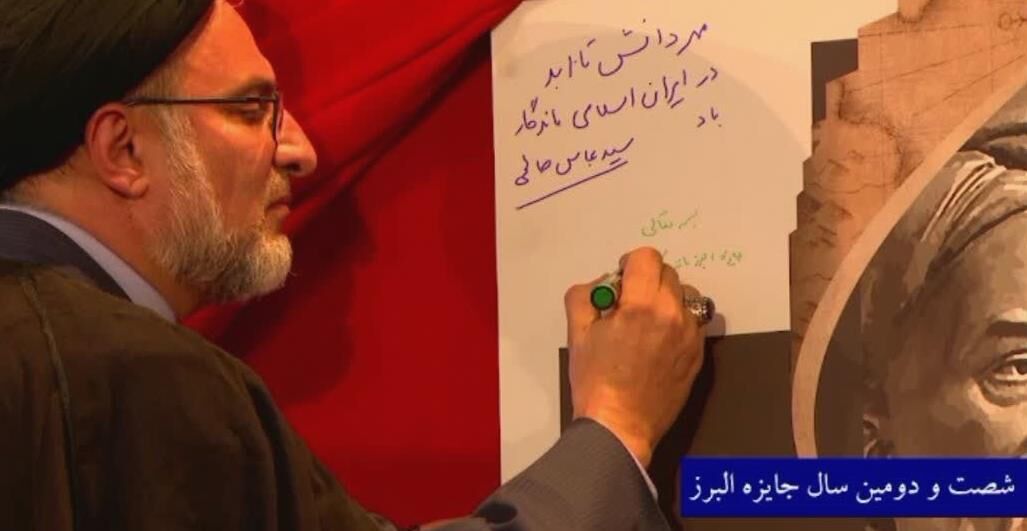 مهر دانش تا ابد
در ایران اسلامی ماندگار
باد
سید عباس صالحی
بسمه تعالی
جایزه البرز
شصت و دومین سال جایزه البرز